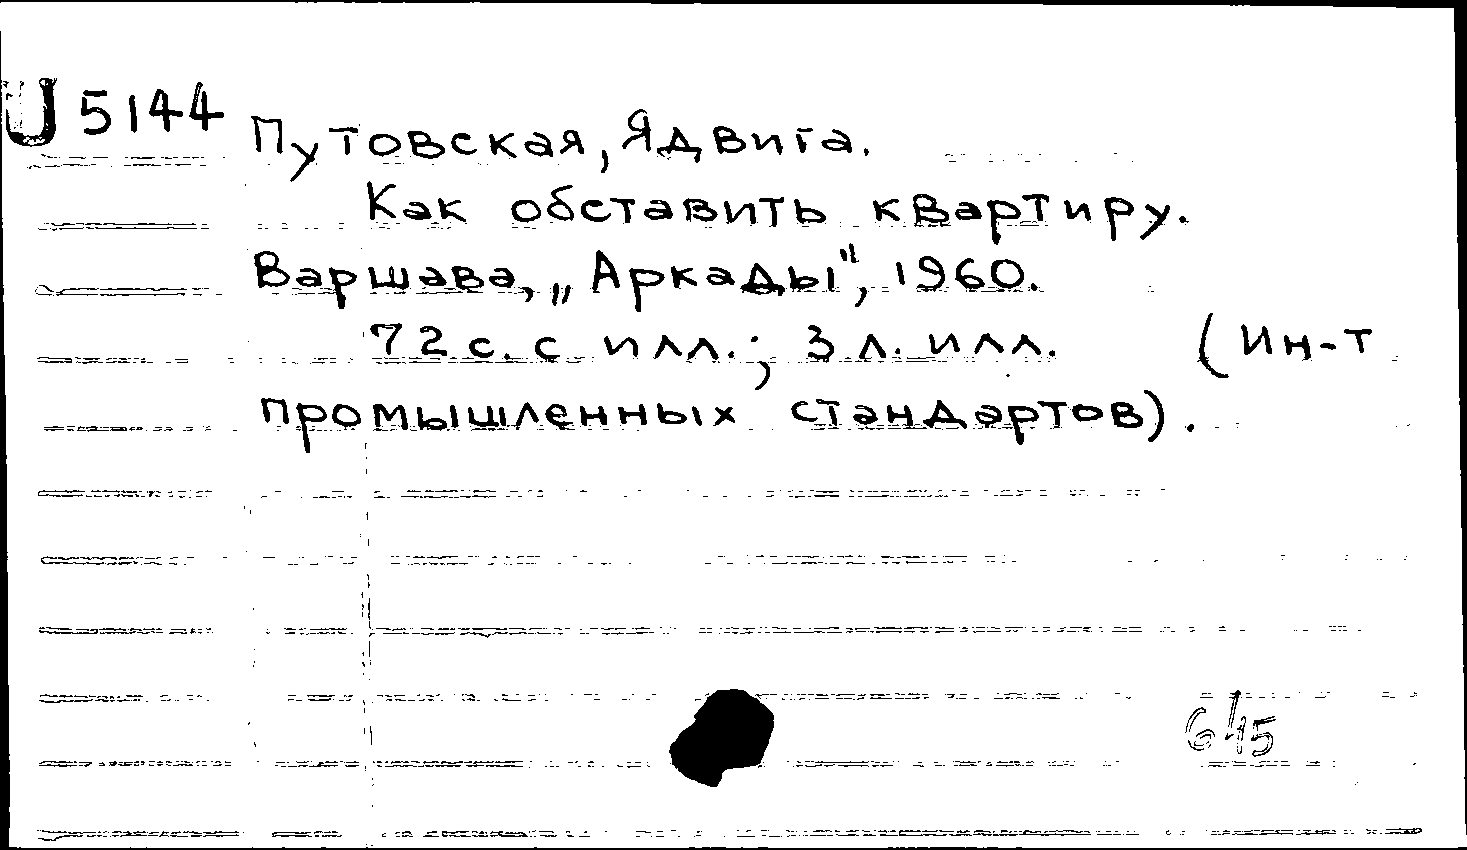 U 5144
Путовская, Ядвига.
Как обставить квартиру.
Варшава, „Аркады", 1960.
72 с. с илл.; 3 л. илл. (Ин-т
промышленных стандартов).